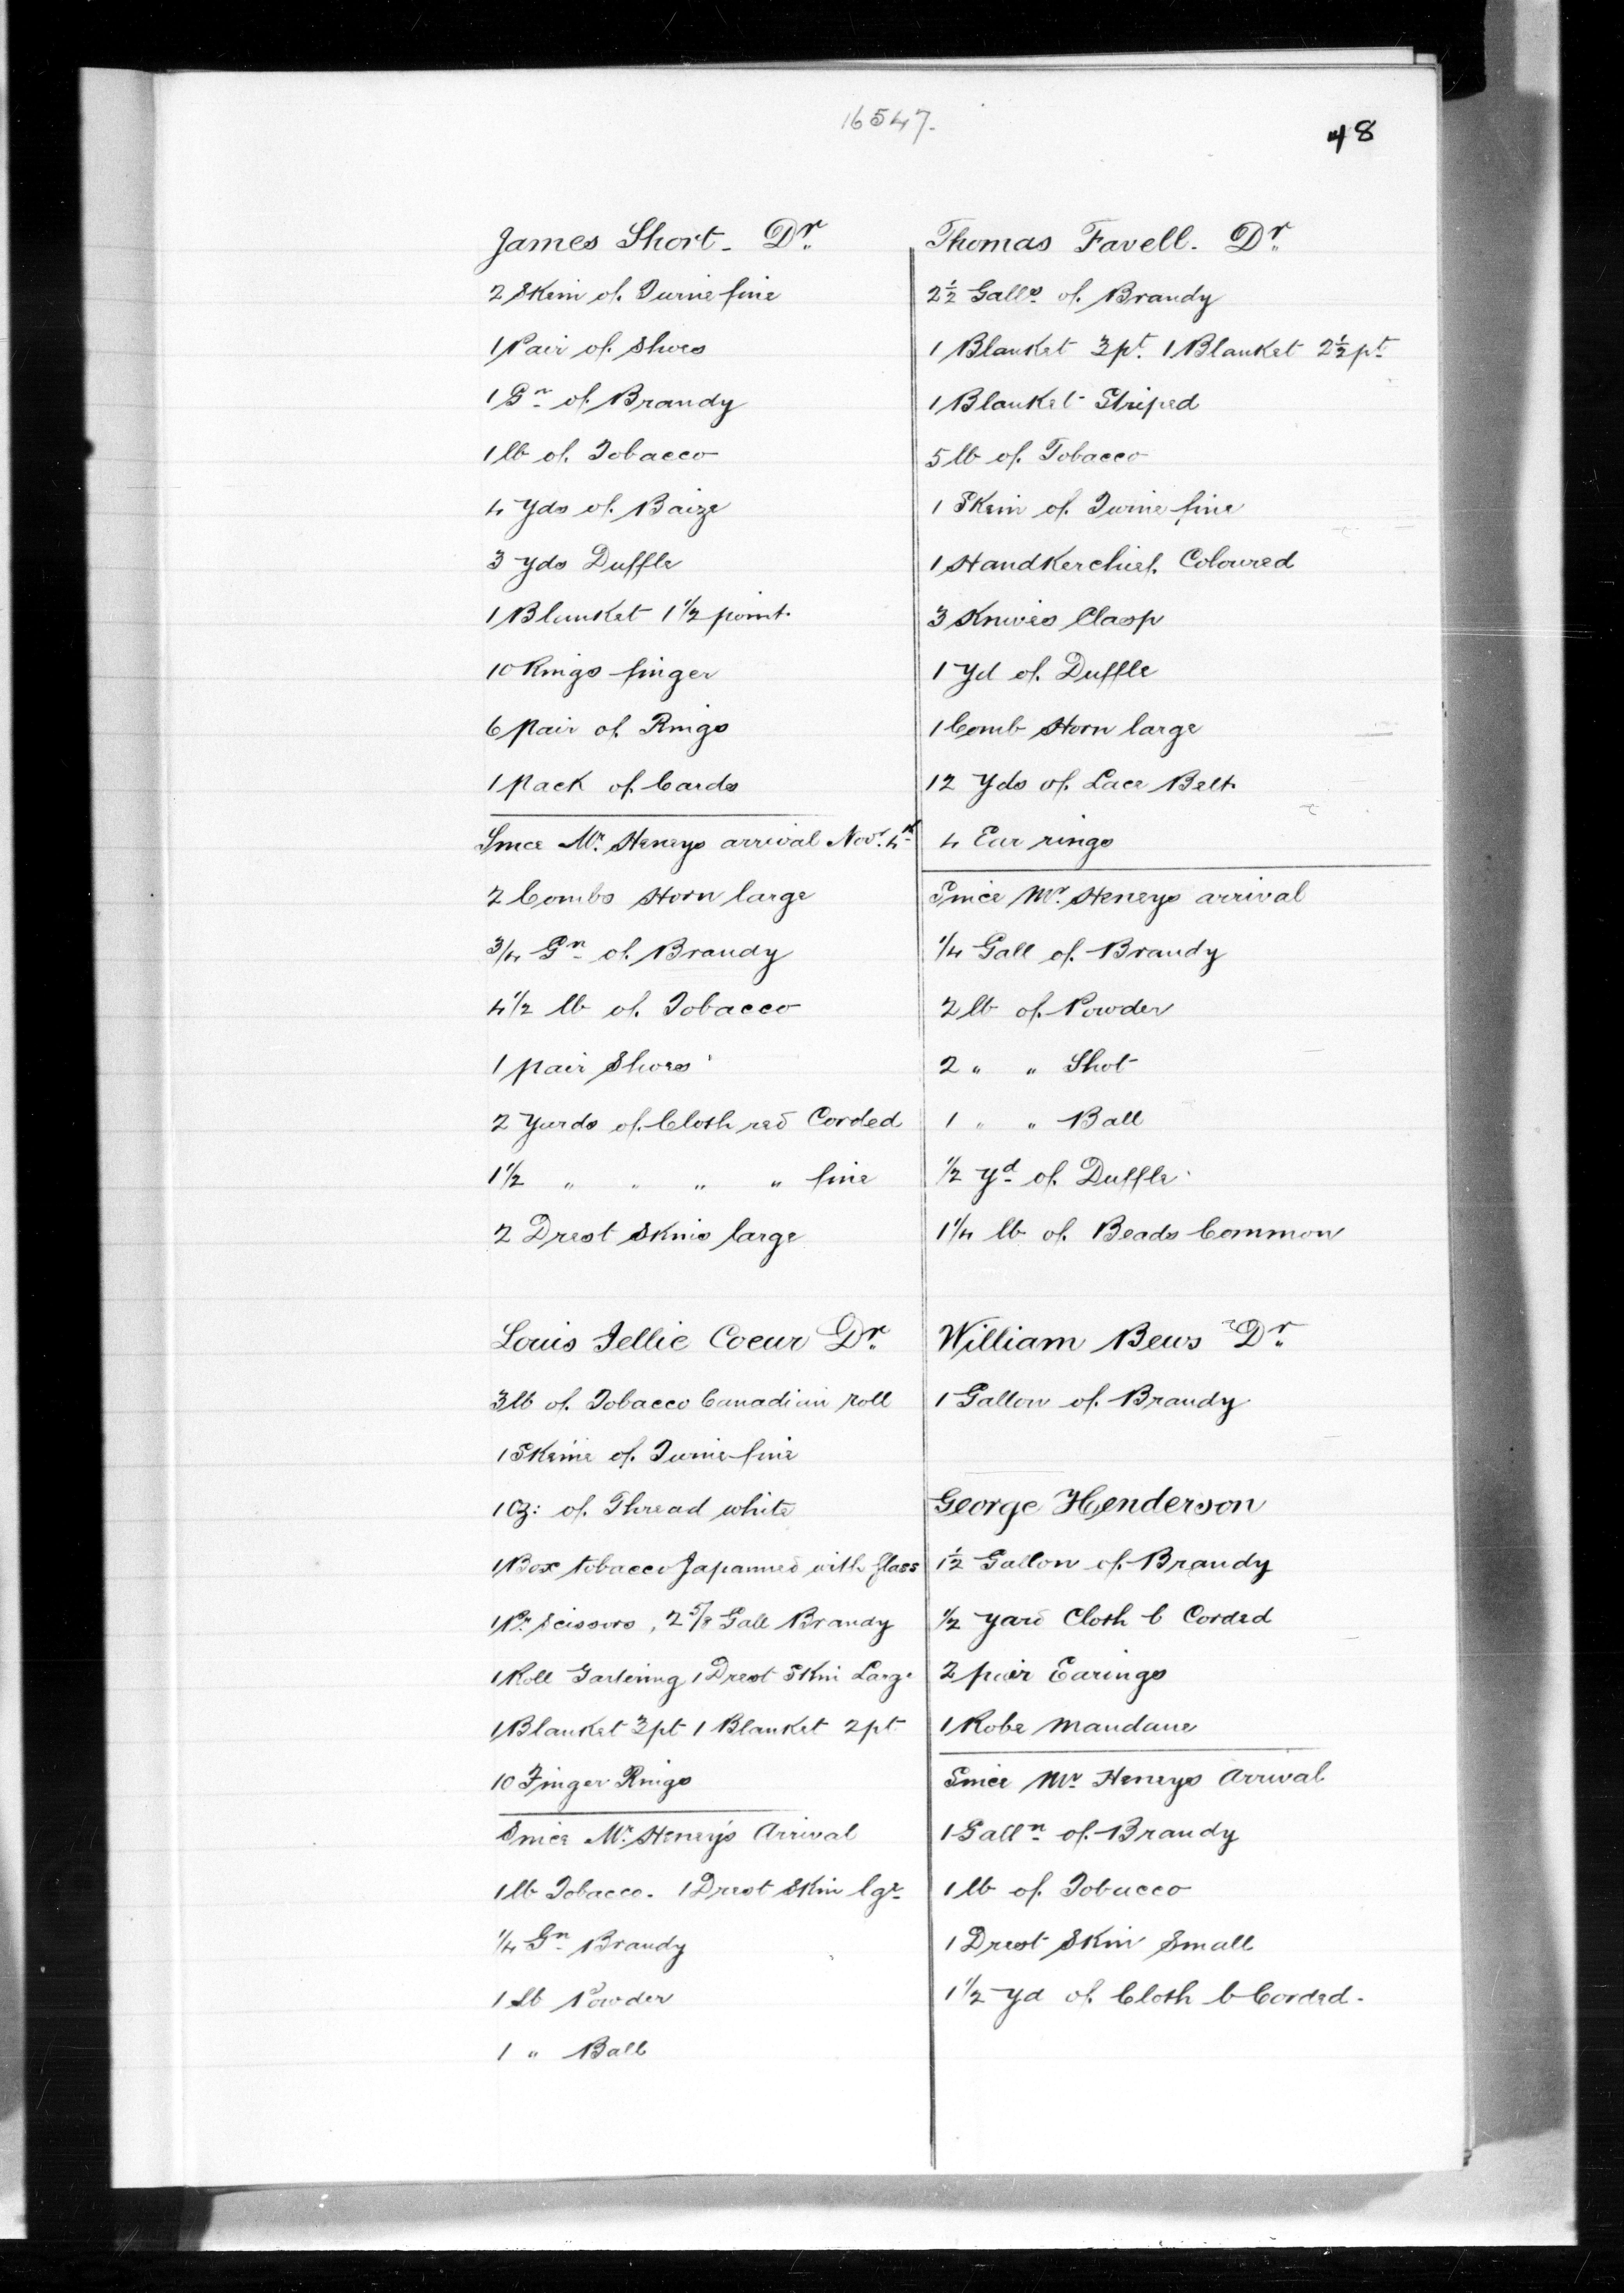 16547.
48
James Short - Dr.
2 Skein of Twine fine
1 Pair of Shoes
1 Gn of Brandy
1 lb of Tobacco
4 Yds of Baize
3 yds Duffle
1 Blanket 1 1/2 point
10 Rings finger
6 pair of Rings
1 pack of Cards
Since Mr. Heneys arrival Novr. 4th
2 Combs Horn large
3/4 Gn of Brandy
4 1/2 lb of Tobacco
1 pair Shoes
2 Yards of Cloth red Corded
1 1/2 " " " " fine
2 Drest Skins large
Louis Jellie Coeur Dr.
3 lb of Tobacco Canadian roll
1 Skeine of Twine fine
1 Oz: of Thread white
1 Box tobacco Japanned with glass
1 Pr. Scissors, 2 5/8 Gall Brandy
1 Roll Gartering 1 Drest Skin Large
1 Blanket 3 pt 1 Blanket 2 pt
10 Finger Rings
Since Mr. Heney's Arrival
1 lb Tobacco. 1 Drest Skin lge
1/4 Gn Brandy
1 lb Powder
1 " Ball
Thomas Favell. Dr.
2 1/2 Galls. of Brandy
1 Blanket 3 pt. 1 Blanket 2 1/2 pt
1 Blanket Striped
5 lb of Tobacco
1 Skein of Twine fine
1 Handkerchief Coloured
3 Knives Clasp
1 Yd of Duffle
1 Comb Horn large
12 Yds of Lace Belt
4 Ear rings
Since Mr. Heneys arrival
1/4 Gall of Brandy
2 lb of Powder
2 " " Shot
1 " " Ball
1/2 Yd of Duffle
1 1/4 lb of Beads Common
William Bews Dr.
1 Gallon of Brandy
George Henderson
1 1/2 Gallon of Brandy
1/2 yard Cloth b Corded
2 pair Earings
1 Robe Mandane
Since Mr. Heneys Arrival
1 Galln of Brandy
1 lb of Tobacco
1 Drest Skin Small
1 1/2 Yd of Cloth b Corded.